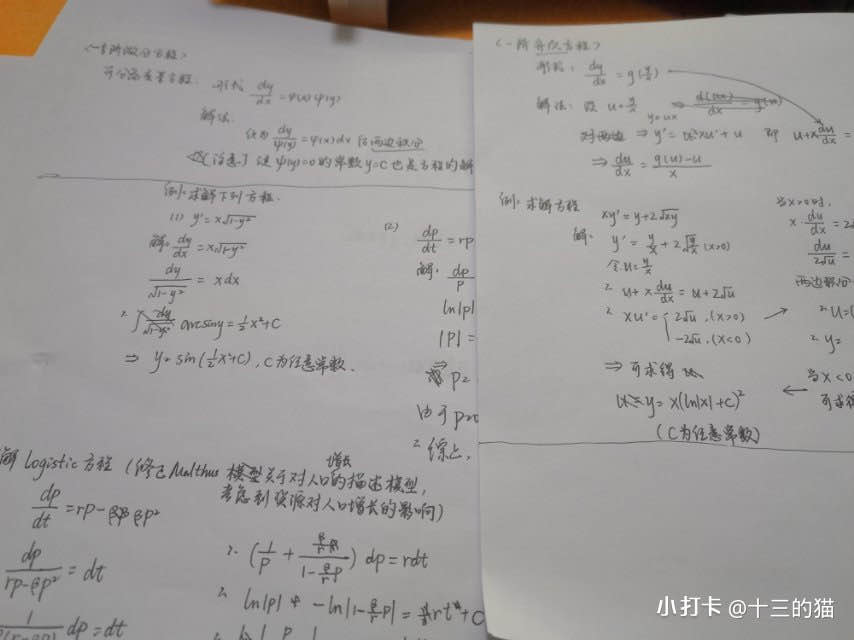 〈一阶微分方程〉
可分离变量方程: 形式 dy/dx = φ(x)ψ(y)
解法:
化为 dy/ψ(y) = φ(x)dx 后两边积分
[注意] 使ψ(y)=0的常数y=C也是方程的解
例: 求解下列方程.
(1) y' = x√(1-y²)
解: dy/dx = x√(1-y²)
dy/√(1-y²) = xdx
arcsiny = ½x²+C
⇒ y = sin(½x²+C), C为任意常数.
(2) dp/dt = rp
解: dp/p
ln|p|
|p| =
p=
由于p=0
综上,
解 logistic 方程 (修正Malthus 模型关于对人口增长的描述模型,
考虑到资源对人口增长的影响)
dp/dt = rp - βp²
dp/(rp-βp²) = dt
dp = dt
(1/p + (β/r)/(1-(β/r)p)) dp = rdt
ln|p| - ln|1-(β/r)p| = rt + C
〈一阶齐次方程〉
形式: dy/dx = g(y/x)
解法: 设 u = y/x
y=ux
对两边 ⇒ y' = xu'+u 即 u+x du/dx =
⇒ du/dx = (g(u)-u)/x
例: 求解方程
xy' = y+2√(xy)
解: y' = y/x + 2√(y/x) (x>0)
令u=y/x
u + x du/dx = u+2√u
xu' = { 2√u, (x>0)
-2√u, (x<0)
⇒ 可求得
y = x(ln|x|+C)²
(C为任意常数)
当x>0时,
x·du/dx = 2
du/2√u =
两边积分
u=
y=
当x<0
可求得
小打卡 @十三的猫